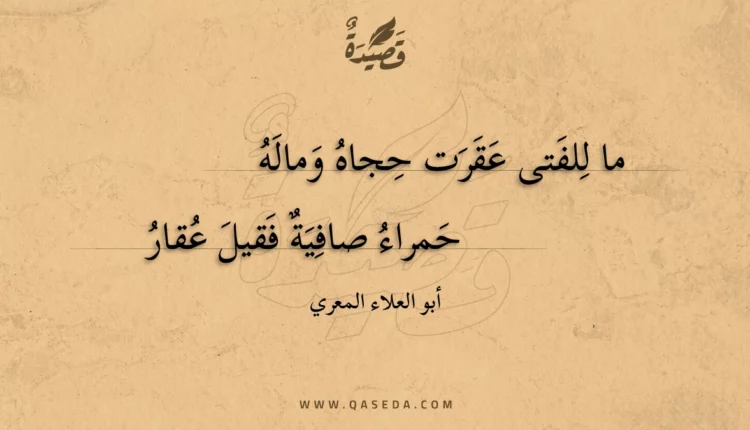 قَصِيدَةٌ
ما لِلفَتى عَقَرَت حِجاهُ وَمالَهُ
حَمراءُ صافِيَةٌ فَقيلَ عُقارُ
أبو العلاء المعري
WWW.QASEDA.COM